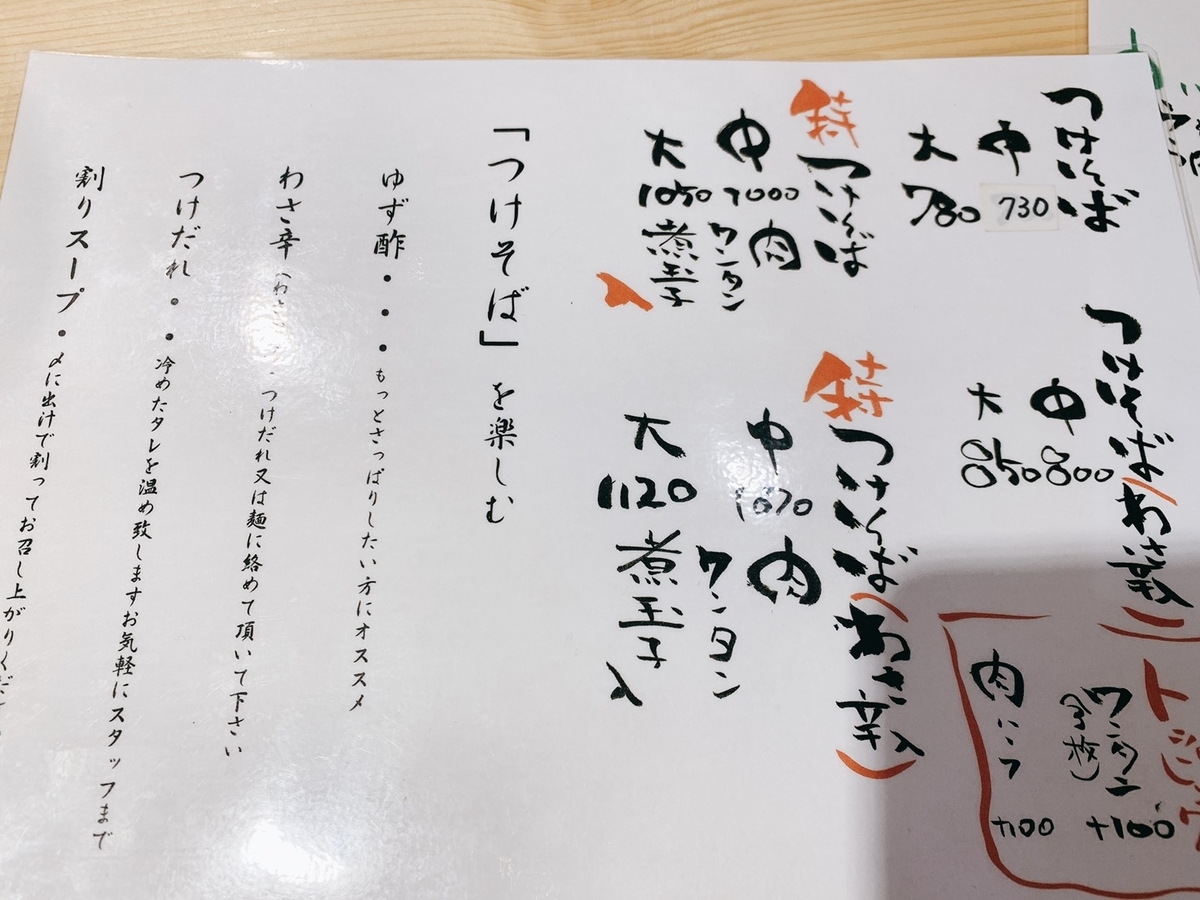 つけそば
中 730
大 780
つけそば(わさ辛入)
中 800
大 850
特 つけそば
中 1000
大 1050
肉
ワンタン
煮玉子
入
特 つけそば(わさ辛入)
中 1070
大 1120
肉
ワンタン
煮玉子
入
ワンタン
+100
肉
+100
「つけそば」を楽しむ
ゆず酢・・・もっとさっぱりしたい方にオススメ
わさ辛(わさ つけだれ又は麺に絡めて頂いて下さい
つけだれ・・冷めたタレを温め致しますお気軽にスタッフまで
割りスープ・〆に出汁で割ってお召し上がりくだ